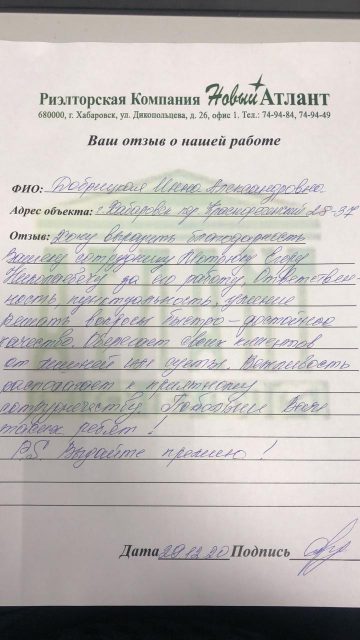 Риэлторская Компания Новый Атлант
680000, г. Хабаровск, ул. Дикопольцева, д. 26, офис 1. Тел.: 74-94-84, 74-94-49
Ваш отзыв о нашей работе
ФИО: Добрицкая Александровна
Адрес объекта: г. Хабаровск 28-37
Отзыв: Хочу выразить благодарность
Вашему сотруднику
за его работу. Ответствен-
ность, пунктуальность, умение
решать вопросы быстро - достойное
качество. Оберегает своих клиентов
от суеты. Вежливость
располагает к приятному
сотрудничеству. Побольше Вам
таких ребят!
P.S. Выдайте премию!
Дата 29.12.20 Подпись